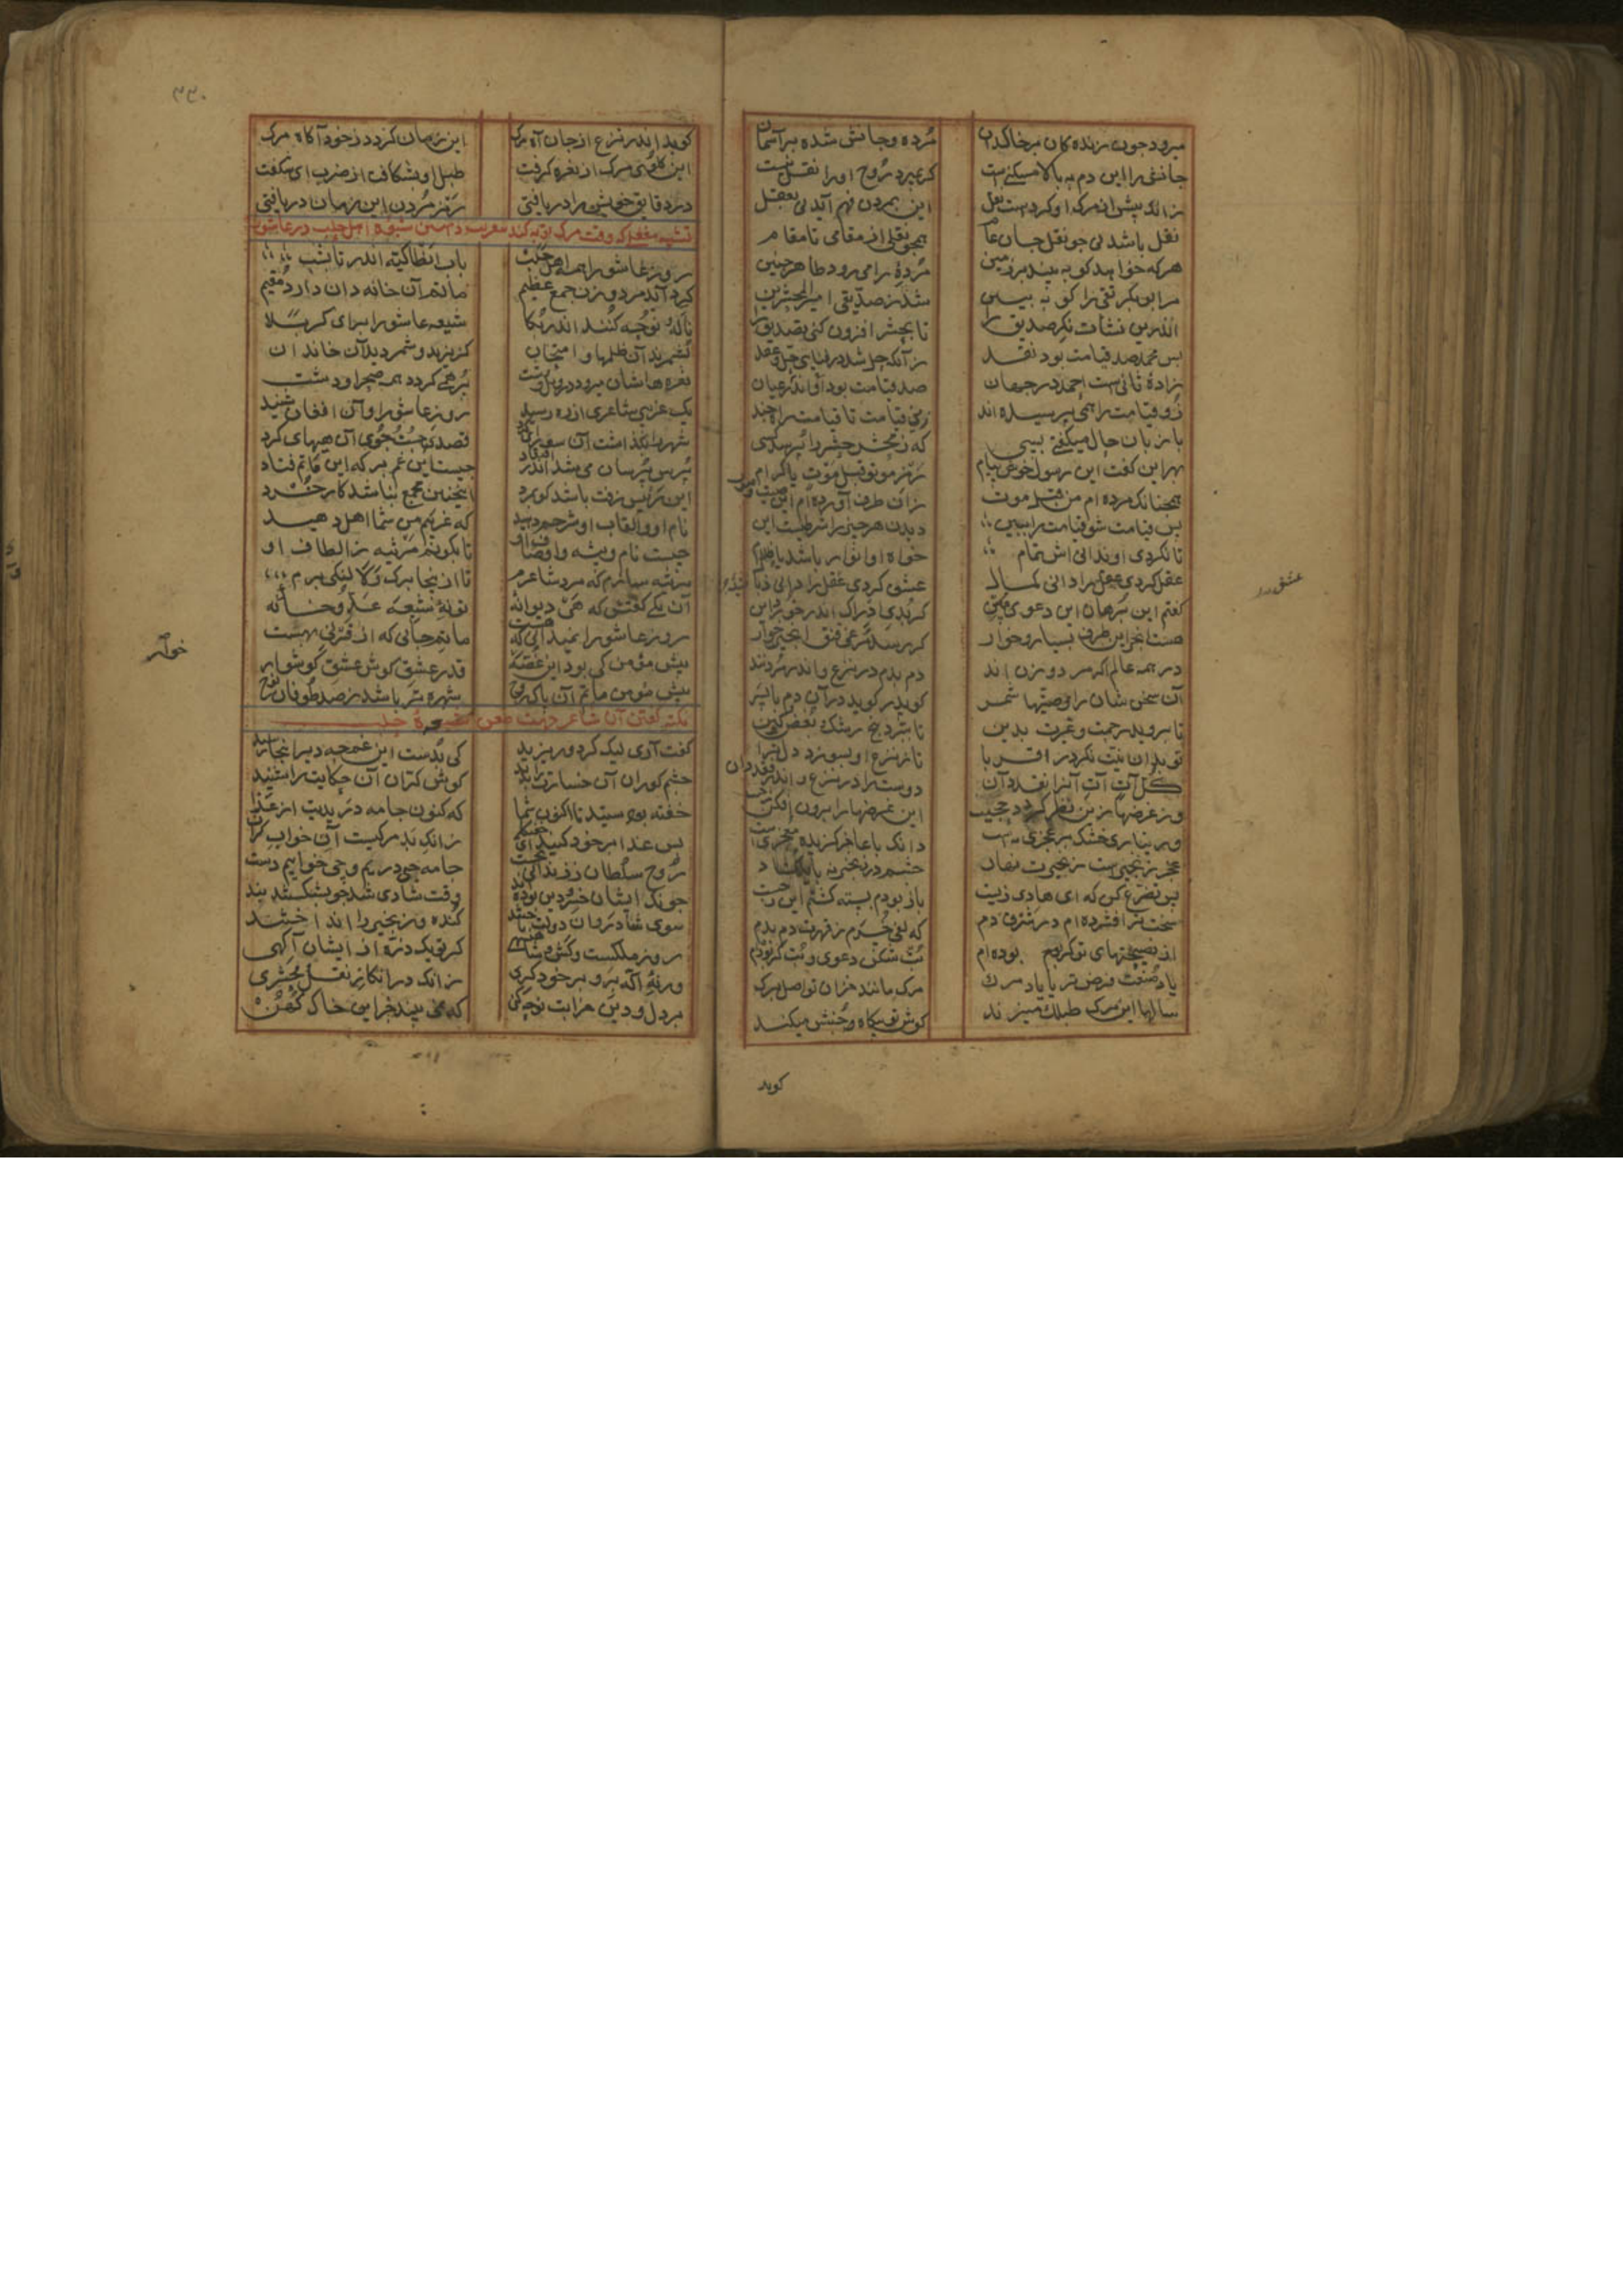 میرود چون زنده کان بر خاکدان
مرده و جانش شده بر آسمان
جانش را این دم به بالا مسکنیست
کر بمیرد روح او را نقل نیست
زانکه پیش از مرک او کردست نقل
این بمردن فهم آید نی بعقل
نقل باشد نی جو نقل جان عام
همجو نقلی از مقامی تا مقام
هرکه خواهد کو به بیند بر زمین
مرده را می رود ظاهر جنین
مر ابوبکر تقی را کو به بین
شد ز صدیقی امیر المحشرین
اندرین نشأت نکر صدیق را
تا بحشر افزون کنی تصدیق را
بس محمد صد قیامت بود نقد
زآنکه حل شد در فنای حل و عقد
زادۀ ثانیست احمد در جهان
صد قیامت بود او اندر عیان
زو قیامت را همی پرسیده اند
ای قیامت تا قیامت راه جند
با زبان حال میکفتی بسی
که ز محشر حشر را پرسد کسی
بهر این کفت این رسول خوش پیام
رمز موتوا قبل موت یا کرام
همجنانکه مرده ام من قبل موت
زان طرف آورده ام این صیت و صوت
بس قیامت شو قیامت را ببین
دیدن هر جیز را شرطست این
تا نکردی او ندانی اش تمام
خواه او انوار باشد یا ظلام
عقل کردی عقل را دانی کمال
عشق کردی عقل را دانی ذبال
کفتم این برهان این دعوی مبین
کر بدی ادراک اندر خور این
هست انجیر این طرف بسیار و خوار
کر رسد مرغی قنق انجیر خوار
در همه عالم اکر مرد و زن اند
دم بدم در نزع و اندر مردنند
آن سخن شان را وصیتها شمر
کوید در آن دم با پسر
تا بروید رحمت و غیرت بدین
تا ببرد بیخ رشک بغض و کین
تو بدان نیت نکر در اقربا
تا ز نزع او بسوزد دل ترا
کل آت آت آنرا نقد دان
دوست را در نزع و اندر فقد دان
ور غرضها زین نظر کردد حجیب
این غرضها را برون افکن ز جیب
ور نیاری خشک بر عجزی مایست
دانک با عاجز کزیده معجزیست
عجز زنجیریست زنجیرت نهاد
جشم در زنجیرنه باید کشاد
بس تضرع کن که ای هادی زیست
باز بودم بسته کشتم این ز جیست
سخت تر افشرده ام در شر قدم
که لفی خسرم ز قهرت دم بدم
از نصیحتهای تو کر بوده ام
بت شکن دعوی و بت کر بوده ام
یاد صنعت فرض تر یا یاد مرک
مرک مانند خزان تو اصل برک
سالها این مرک طبلک میزند
کوش تو بیکاه جنبش میکند
کوید
عشق
۳۳۰
کوید اندر نزع از جان آه مرک
این زمان کردد ز خود آکاه مرک
این کلوی مرک از نعره کرفت
طبل او بشکافت از ضرب ای شکفت
در دقایق خویش را در یافتی
رمز مردن این زمان دریافتی
روز عاشورا همه اهل حلب
باب انطاکیه اندر تا بشب
کرد آید مرد و زن جمع عظیم
ماتم آن خانه دان دارد مقیم
ناله و نوحه کنند اندر بکا
شیعه عاشورا برای کربلا
بشمرند آن ظلمها و امتحان
کز یزید و شمر دید آن خاندان
نعره هاشان میرود در ویل و
پر همی کردد همه صحرا و دشت
یک غریبی شاعری از ره رسید
روز عاشورا و آن افغان شنید
شهر را بکذاشت آن سو رای کرد
قصد جست و جوی آن هیهای کرد
پرس پرسان می شد اندر افتقاد
جیست این غم بر که این ماتم فتاد
این رئیس زفت باشد کو بمرد
اینجنین مجمع نباشد کار خرد
نام او و القاب او شرحم دهید
که غریبم من شما اهل دهید
جیست نام و پیشه و اوصاف او
تا بکویم مرثیه ز الطاف او
مرثیه سازم که مرد شاعرم
تا از اینجا برک و لالنکی برم
آن یکی کفتش که هی دیوانۀ
تو نۀ شیعه عدو خانۀ
روز عاشورا نمیدانی که هست
ماتم جانی که از قرنی بهست
پیش مؤمن کی بود این غصه
قدر عشق کوش عشق کوشوار
پیش مؤمن ماتم آن پاک روح
شهره تر باشد ز صد طوفان نوح
کفت آری لیک کو دور یزید
کی بدست این غم جه دیر اینجا رسید
جشم کوران آن خسارت را بدید
کوش کران آن حکایت را شنید
خفته بودستید تا اکنون شما
که کنون جامه دریدیت از عزا
بس عزا بر خود کنید ای خفتکان
زانک بد مرکیست آن خواب کران
روح سلطانی ز زندانی بجست
جامه جه دریم و جون خواییم دست
جونک ایشان خسرو دین بوده اند
وقت شادی شد جو بشکستند بند
سوی شادروان دولت تاختند
کنده و زنجیر را انداختند
روز ملکست و کش و شاهنشهی
کر تو یک ذره از ایشان آکهی
ور نۀ آکه برو بر خود کری
زانک در انکار نقل و محشری
بر دل و دین خرابت نوحه کن
که نمی بیند جز این خاک کهن